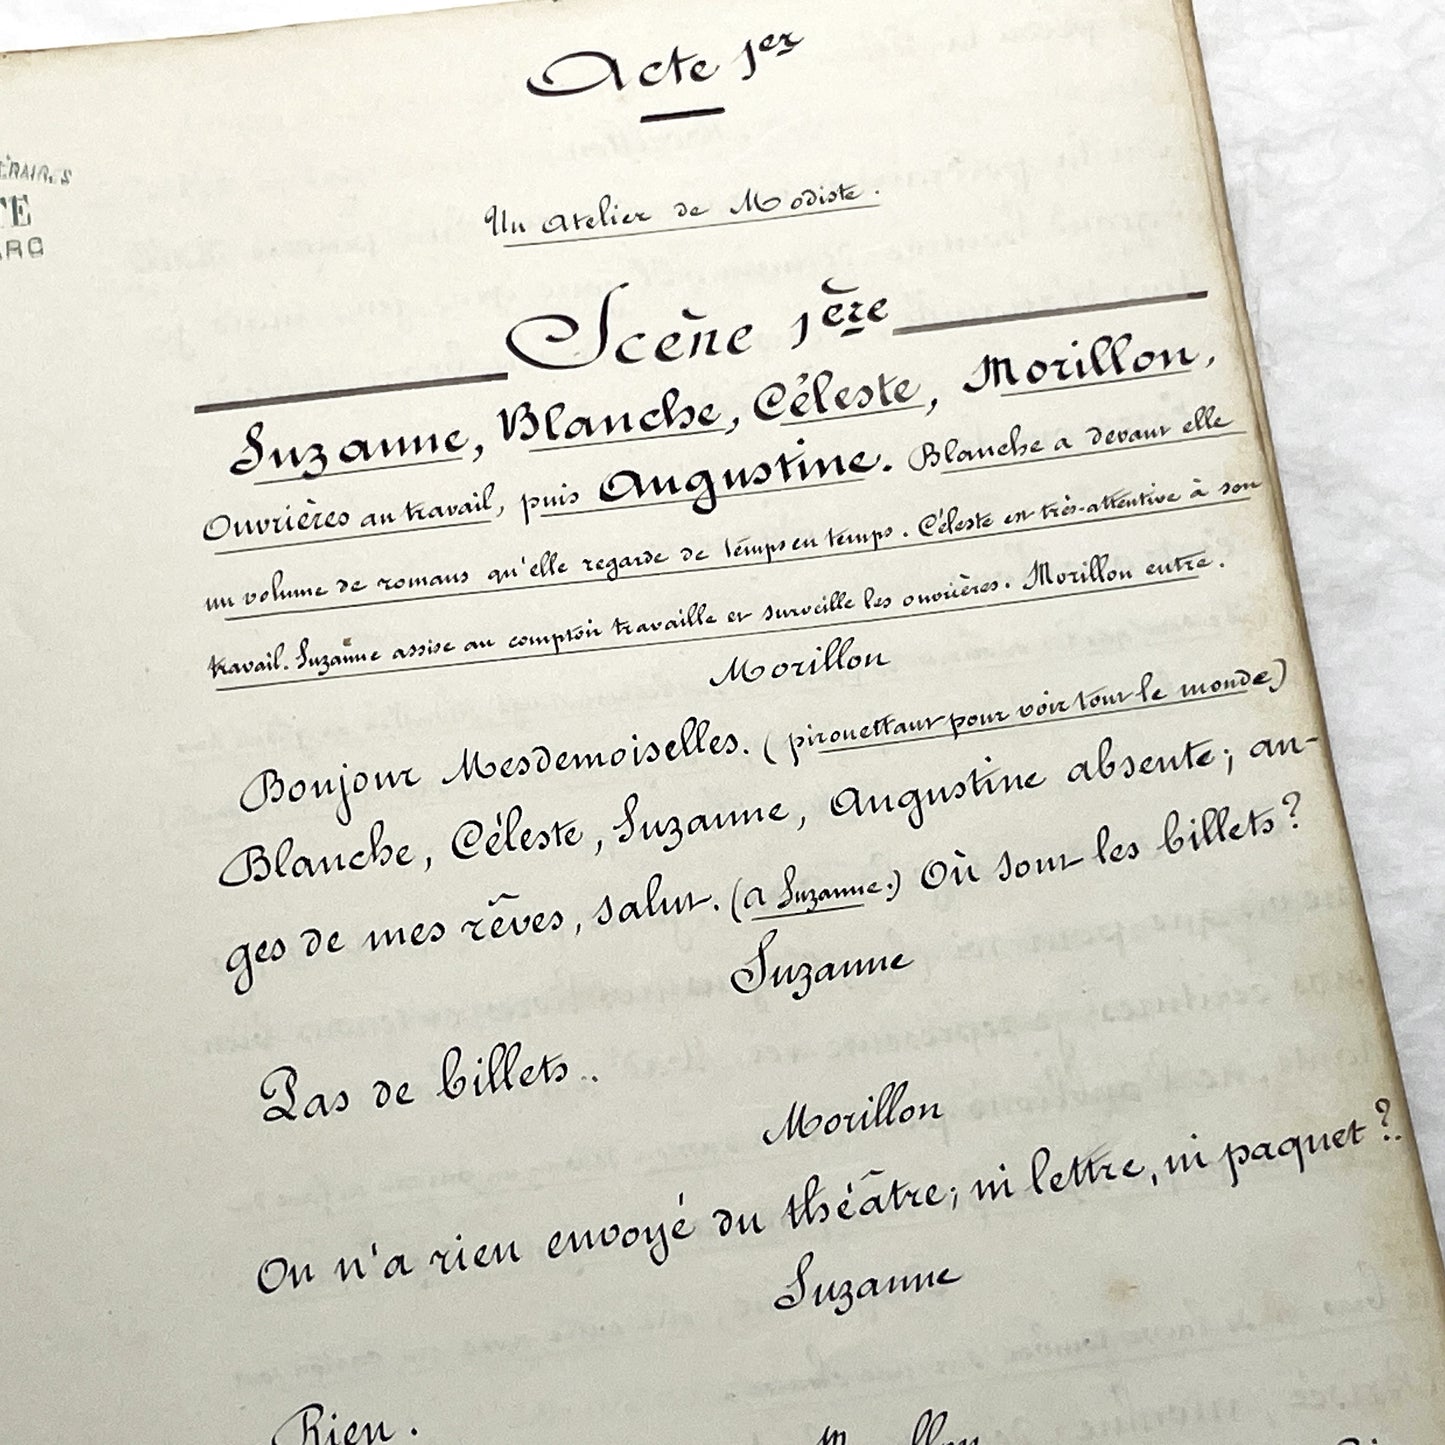 Acte 1er
Un Atelier de Modiste.
Scène 1ère
Suzanne, Blanche, Céleste, Morillon,
Ouvrières au travail, puis Augustine. Blanche a devant elle
un volume de romans qu'elle regarde de temps en temps. Céleste est très-attentive à son
travail. Suzanne assise au comptoir travaille et surveille les ouvrières. Morillon entre.
Morillon
Bonjour Mesdemoiselles. (pirouettant pour voir tout le monde)
Blanche, Céleste, Suzanne, Augustine absente; an-
ges de mes rêves, salut. (a Suzanne.) Où sont les billets?
Suzanne
Pas de billets..
Morillon
On n'a rien envoyé du théâtre; ni lettre, ni paquet?
Suzanne
Rien.
Morillon